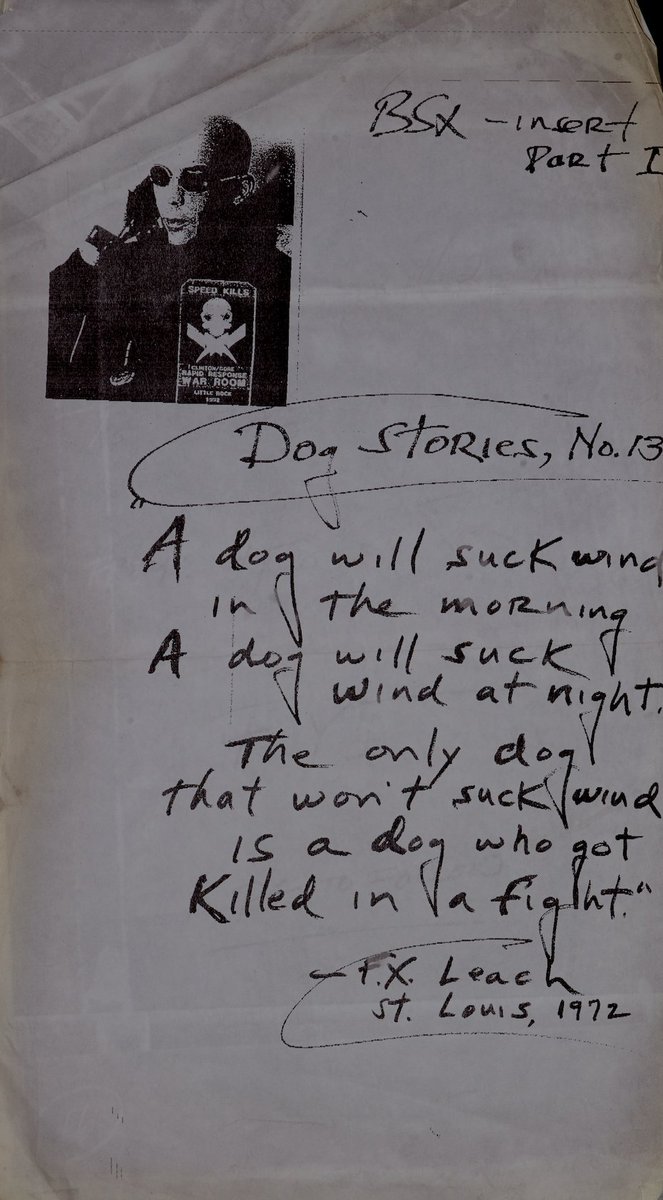 BSX - insert
Part I
SPEED KILLS
CLINTON/GORE
RAPID RESPONSE
WAR ROOM
LITTLE ROCK
1992
Dog Stories, No. 13
"A dog will suck wind
in the morning
A dog will suck
wind at night.
The only dog
that won't suck wind
is a dog who got
Killed in a fight."
— F.X. Leach
St. Louis, 1972